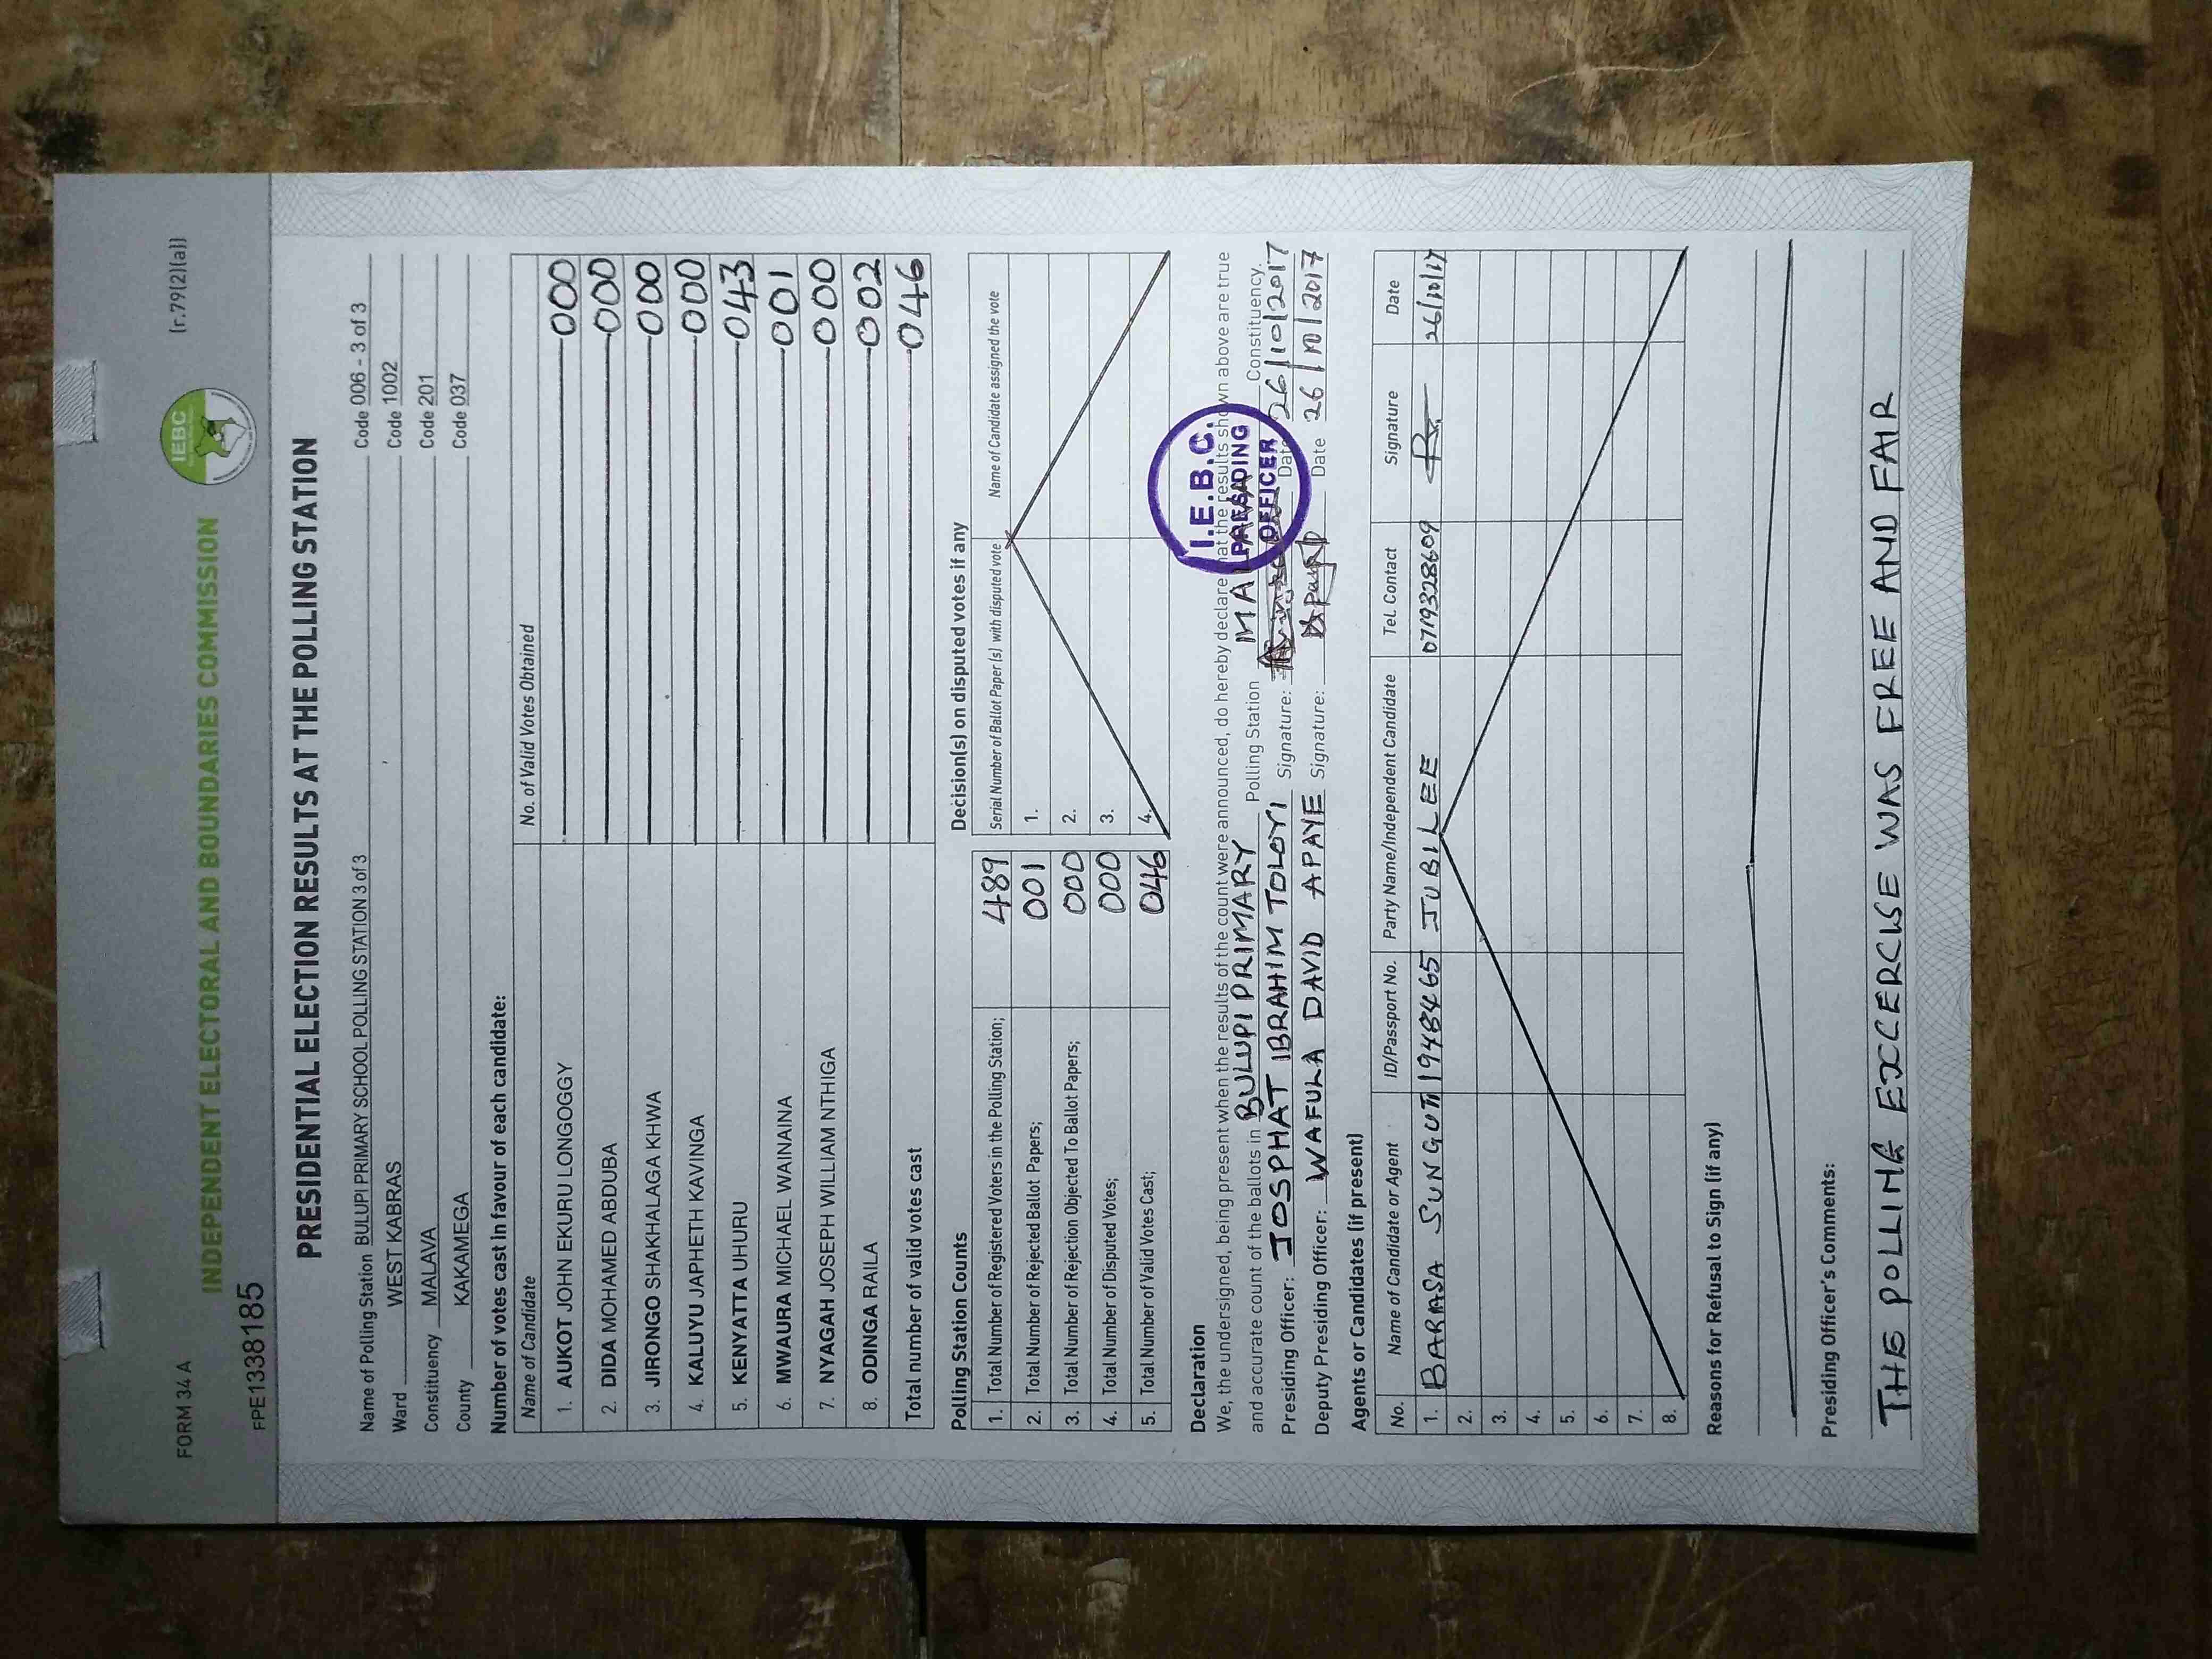 FORM 34 A
(r.79(2)(a))
IEBC
INDEPENDENT ELECTORAL AND BOUNDARIES COMMISSION
FPE1338185
PRESIDENTIAL ELECTION RESULTS AT THE POLLING STATION
Name of Polling Station BULUPI PRIMARY SCHOOL POLLING STATION 3 of 3 Code 006 - 3 of 3
Ward WEST KABRAS Code 1002
Constituency MALAVA Code 201
County KAKAMEGA Code 037
Number of votes cast in favour of each candidate:
Name of Candidate No. of Valid Votes Obtained
1. AUKOT JOHN EKURU LONGOGGY 000
2. DIDA MOHAMED ABDUBA 000
3. JIRONGO SHAKHALAGA KHWA 000
4. KALUYU JAPHETH KAVINGA 000
5. KENYATTA UHURU 043
6. MWAURA MICHAEL WAINAINA 001
7. NYAGAH JOSEPH WILLIAM NTHIGA 000
8. ODINGA RAILA 002
Total number of valid votes cast 046
Polling Station Counts
1. Total Number of Registered Voters in the Polling Station; 489
2. Total Number of Rejected Ballot Papers; 001
3. Total Number of Rejection Objected To Ballot Papers; 000
4. Total Number of Disputed Votes; 000
5. Total Number of Valid Votes Cast; 046
Decision(s) on disputed votes if any
Serial Number of Ballot Paper(s) with disputed vote Name of Candidate assigned the vote
1.
2.
3.
4.
Declaration
We, the undersigned, being present when the results of the count were announced, do hereby declare that the results shown above are true
and accurate count of the ballots in BULUPI PRIMARY Polling Station MALAVA Constituency.
Presiding Officer: JOSPHAT IBRAHIM TOLOYI Signature: Date 26/10/2017
Deputy Presiding Officer: WAFULA DAVID APAYE Signature: Date 26/10/2017
I.E.B.C.
PRESIDING
OFFICER
Agents or Candidates (if present)
No. Name of Candidate or Agent ID/Passport No. Party Name/Independent Candidate Tel. Contact Signature Date
1. BARASA SUNGUTI 19484465 JUBILEE 0719328609 26/10/17
2.
3.
4.
5.
6.
7.
8.
Reasons for Refusal to Sign (if any)
Presiding Officer's Comments:
THE POLLING EXCERCISE WAS FREE AND FAIR